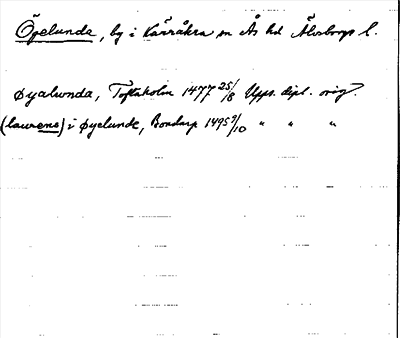 Öjelunda, by i Kärråkra sn Ås hd Älvsborgs l.
Øyalwnda, Toftaholm 1477 25/8 Upps. dipl. orig.
(laurens) i Øyelunde, Bondarp 1495 9/10 " " "